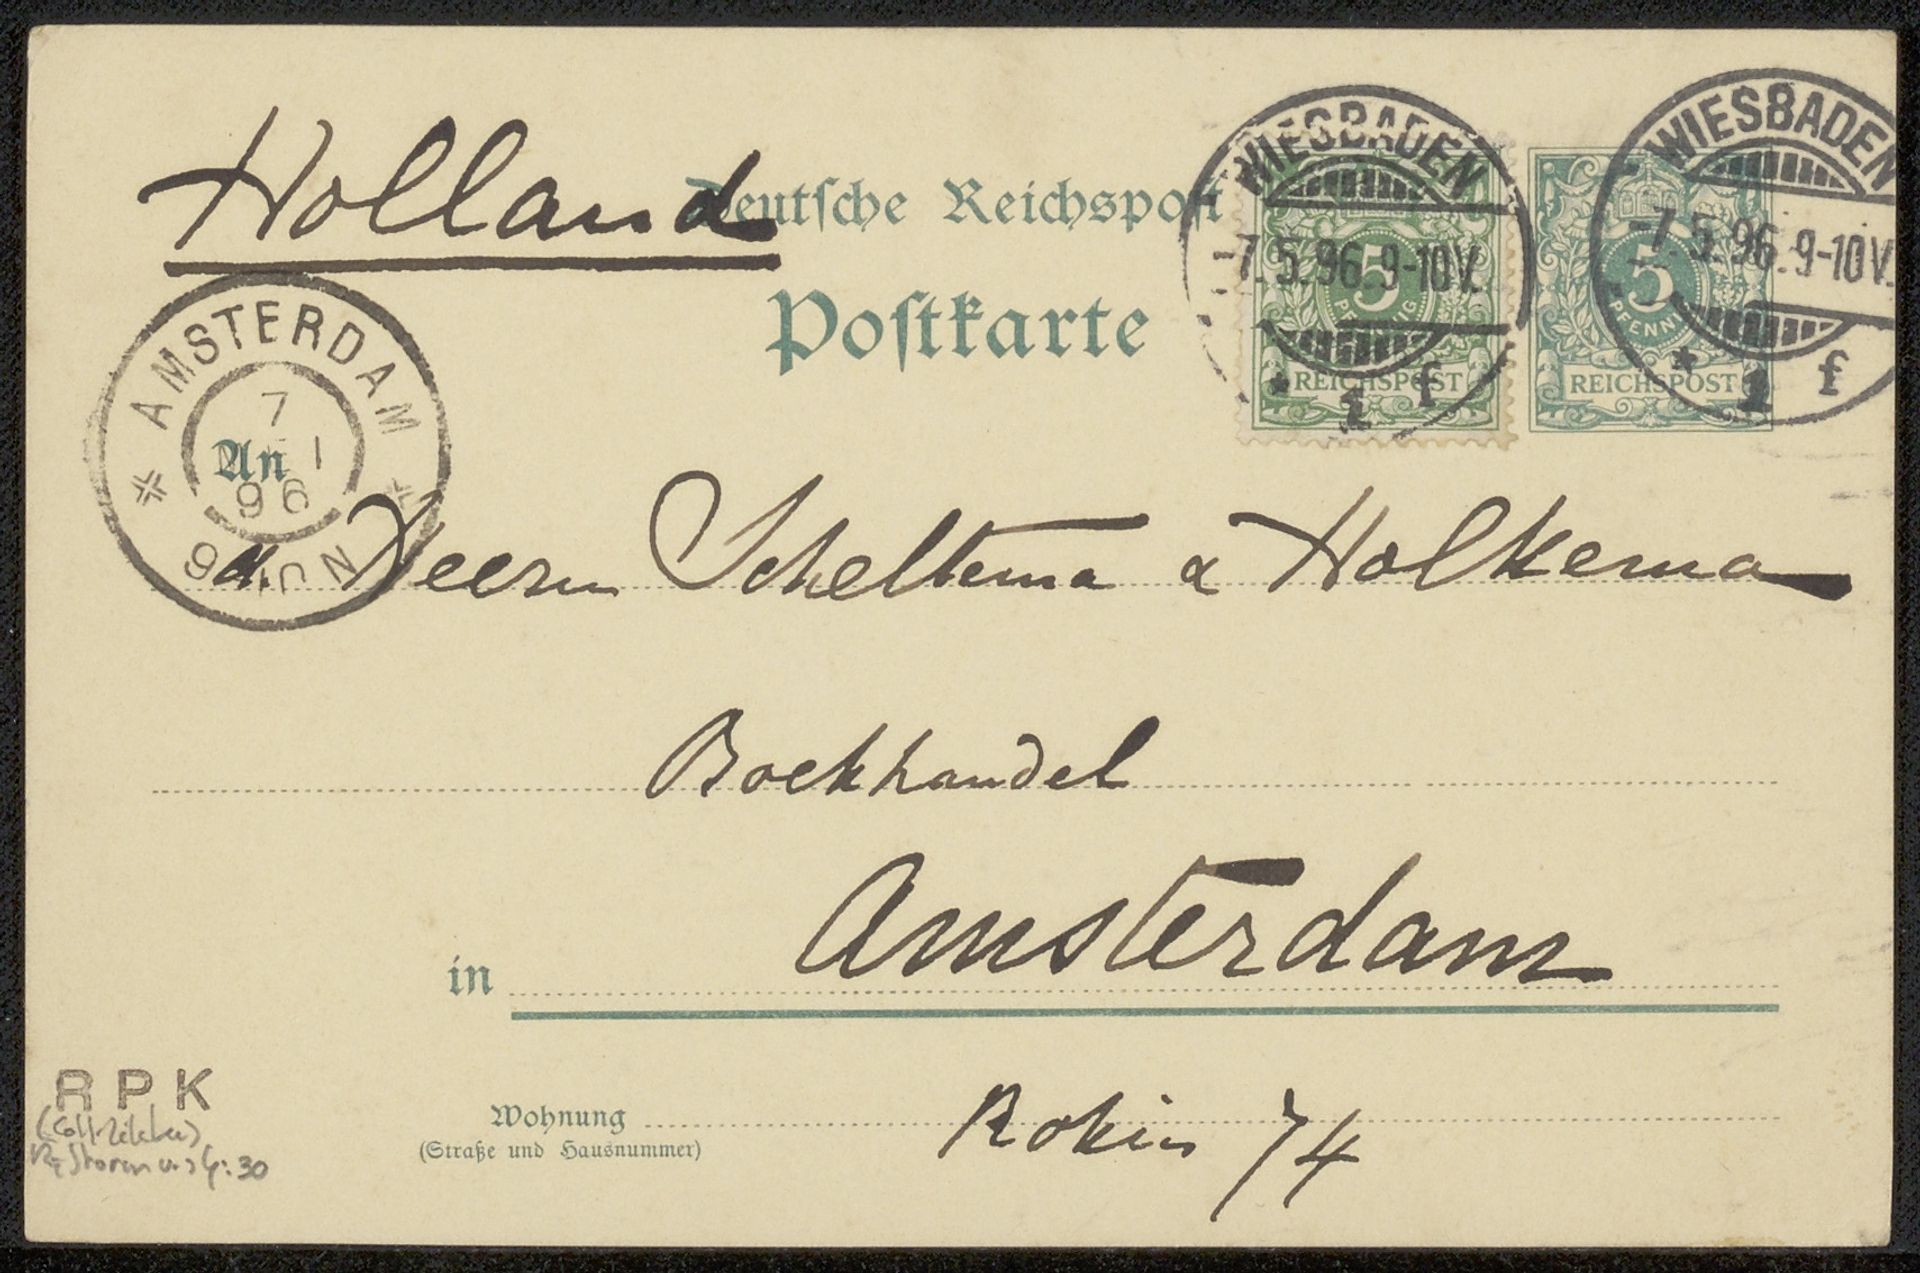 Holland
Deutsche Reichspost
Postkarte
WIESBADEN
-7.5.96.9-10V.
* 1 f
5
PFENNIG
REICHSPOST
WIESBADEN
-7.5.96.9-10V.
* 1 f
5
PFENNIG
REICHSPOST
AMSTERDAM
7
96
9
An
d. Heeren Scheltema & Holkema
Boekhandel
in Amsterdam
Wohnung Rokin 74
(Straße und Hausnummer)
RPK